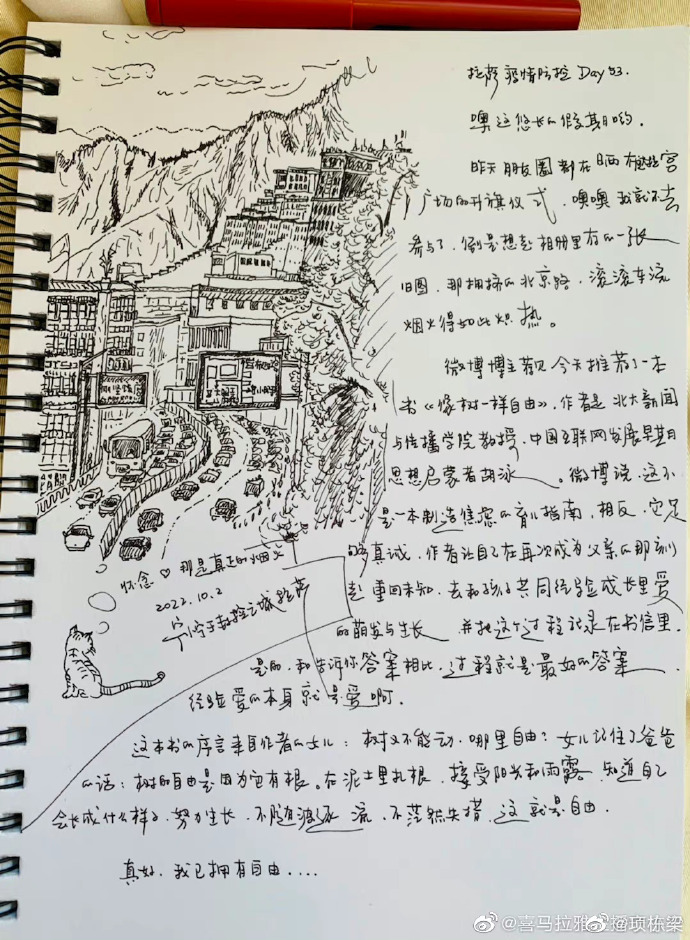 拉萨疫情防控 Day 53.
噢这悠长的假期哟.
昨天朋友圈都在晒布达拉宫
广场的升旗仪式. 噢噢我就不去
参与了. 倒是想起相册里有的一张
旧图. 那拥挤的北京路. 滚滚车流
烟火得如此炽热.
微博博主 今天推荐了一本
书《像树一样自由》, 作者是北大新闻
与传播学院教授. 中国互联网发展早期
思想启蒙者胡泳. 微博说, 这不
是一本制造焦虑的育儿指南, 相反, 它足
够真诚. 作者让自己在再次成为父亲的那刻
起 重回未知. 去和孩子共同经验成长里爱
的萌发与生长 并把这个过程记录在书信里.
是的, 和告诉你答案相比, 过程就是最好的答案
经验爱的本身就是爱啊.
这本书的序言来自作者的女儿: 树又不能动. 哪里自由? 女儿记住了爸爸
的话: 树的自由是因为它有根. 在泥土里扎根, 接受阳光和雨露 知道自己
会长成什么样子, 努力生长, 不随波逐流, 不茫然失措. 这就是自由.
真好. 我已拥有自由....
怀念♡那是真正的烟火
2022.10.2
于拉萨
@喜马拉雅 摇项栋梁